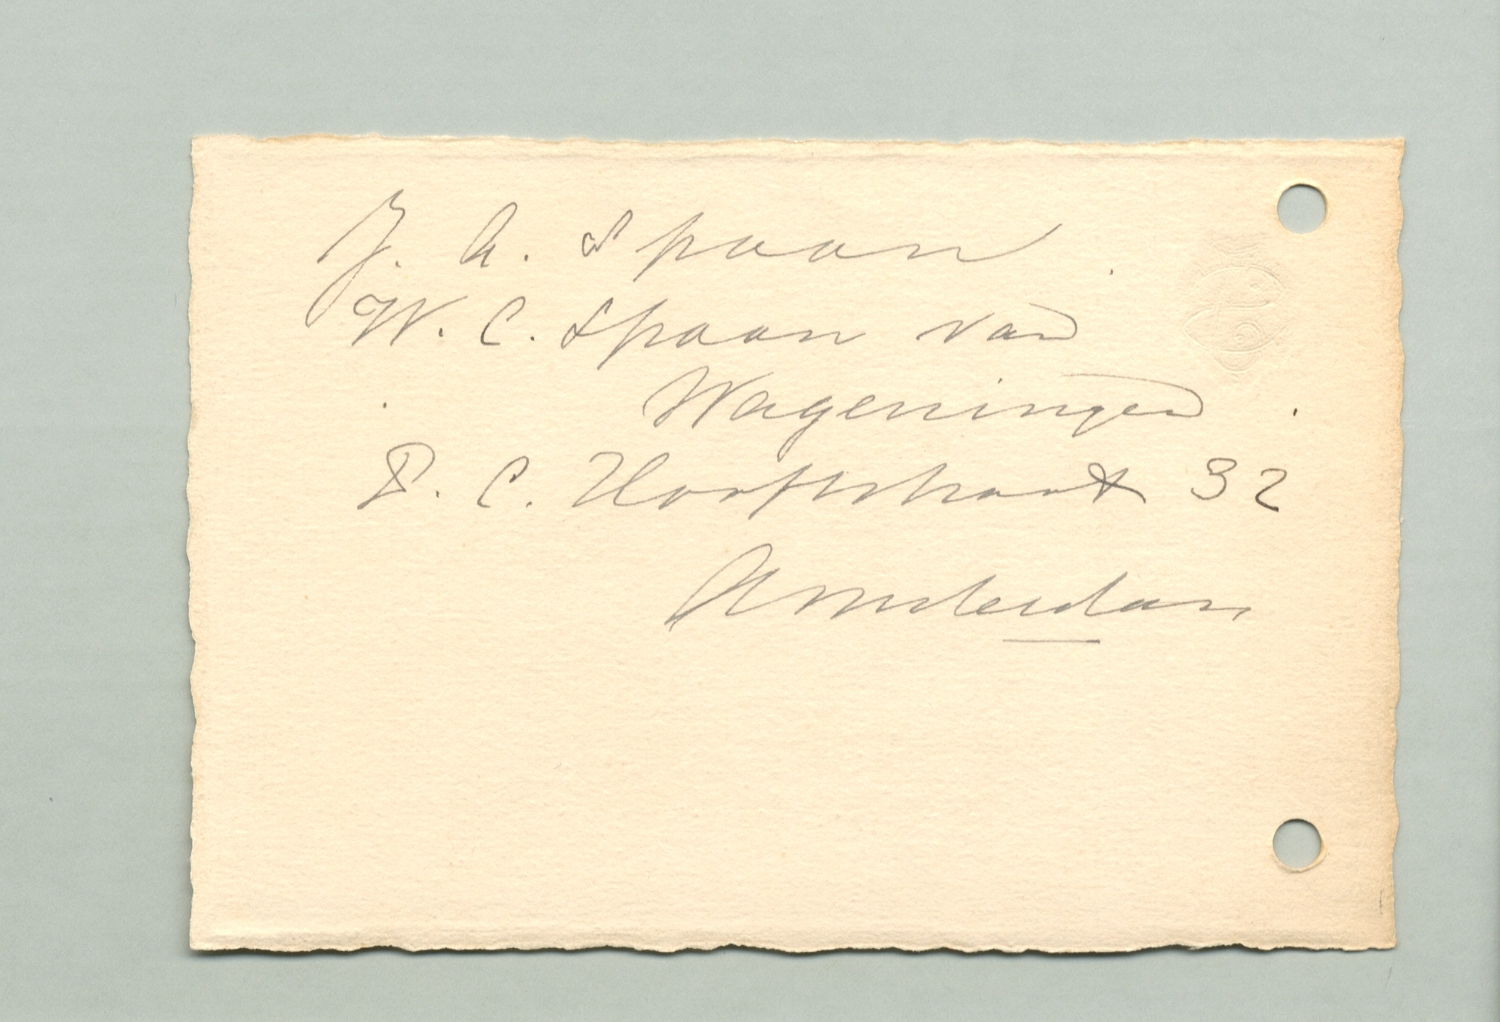 J. A. Spaan
W. C. Spaan van
Wageningen
P. C. Hooftstraat 32
Amsterdam